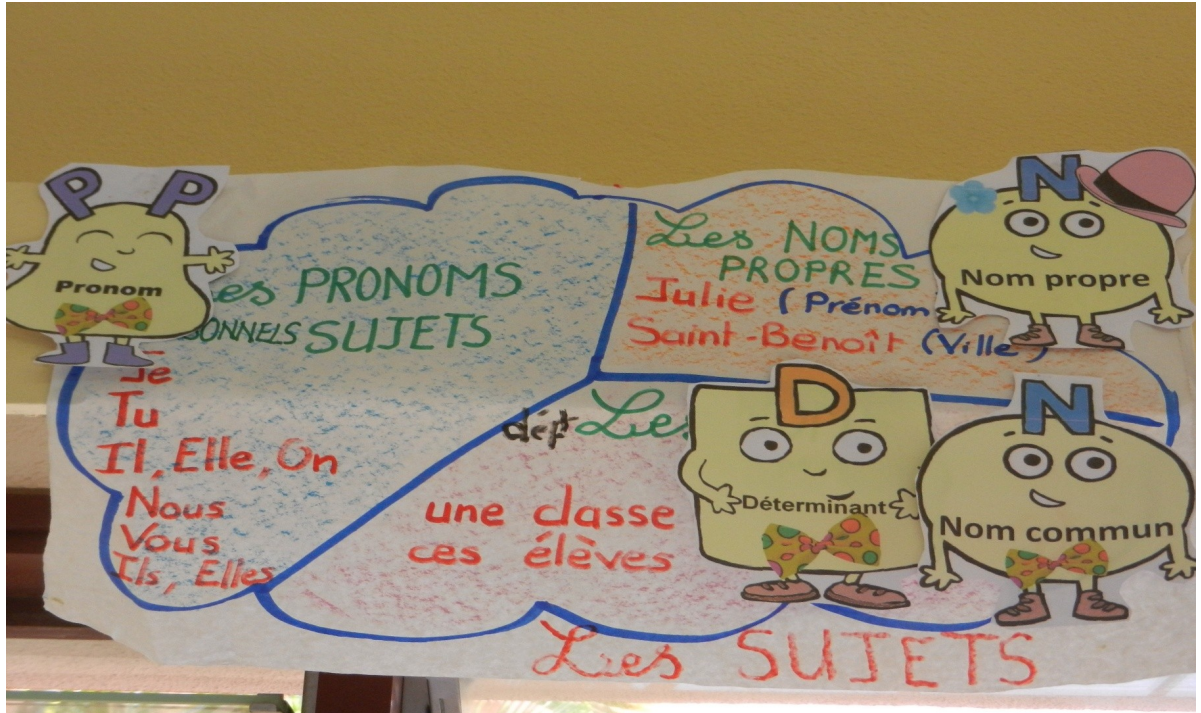 P P
Pronom
es PRONOMS
SONNELS SUJETS
Je
Tu
Il, Elle, On
Nous
Vous
Ils, Elles
Les NOMS
PROPRES
Julie (Prénom
Saint-Benoît (Ville)
N
Nom propre
dét Les
une classe
ces élèves
D
Déterminant
N
Nom commun
Les SUJETS